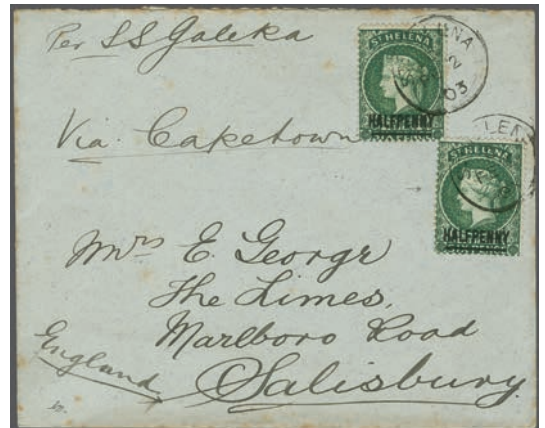 Per SS Galeka
ST HELENA
HALFPENNY
Via Capetown
ST HELENA
HALFPENNY
Mrs E. George
The Limes,
Marlboro Road
England
Salisbury.